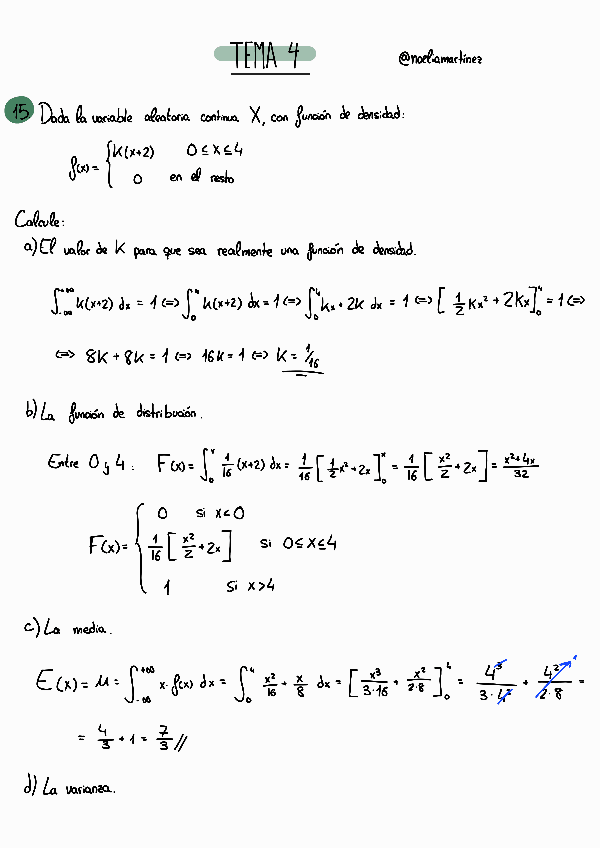 TEMA 4
@noeliamartinez
15 Dada la variable aleatoria continua X, con función de densidad:
f(x) = { K(x+2) 0 ≤ x ≤ 4
0 en el resto
Calcule:
a) El valor de K para que sea realmente una función de densidad.
∫_{-∞}^{+∞} k(x+2) dx = 1 <=> ∫_0^4 k(x+2) dx = 1 <=> ∫_0^4 kx + 2k dx = 1 <=> [ 1/2 kx² + 2kx ]_0^4 = 1 <=>
<=> 8k + 8k = 1 <=> 16k = 1 <=> k = 1/16
b) La función de distribución.
Entre 0 y 4: F(x) = ∫_0^x 1/16 (x+2) dx = 1/16 [ 1/2 x² + 2x ]_0^x = 1/16 [ x²/2 + 2x ] = x²+4x/32
F(x) = { 0 si x < 0
1/16 [ x²/2 + 2x ] si 0 ≤ x ≤ 4
1 si x > 4
c) La media.
E(x) = μ = ∫_{-∞}^{+∞} x · f(x) dx = ∫_0^4 x²/16 + x/8 dx = [ x³/3·16 + x²/2·8 ]_0^4 = 4³/3·4² + 4²/2·8 =
= 4/3 + 1 = 7/3 //
d) La varianza.